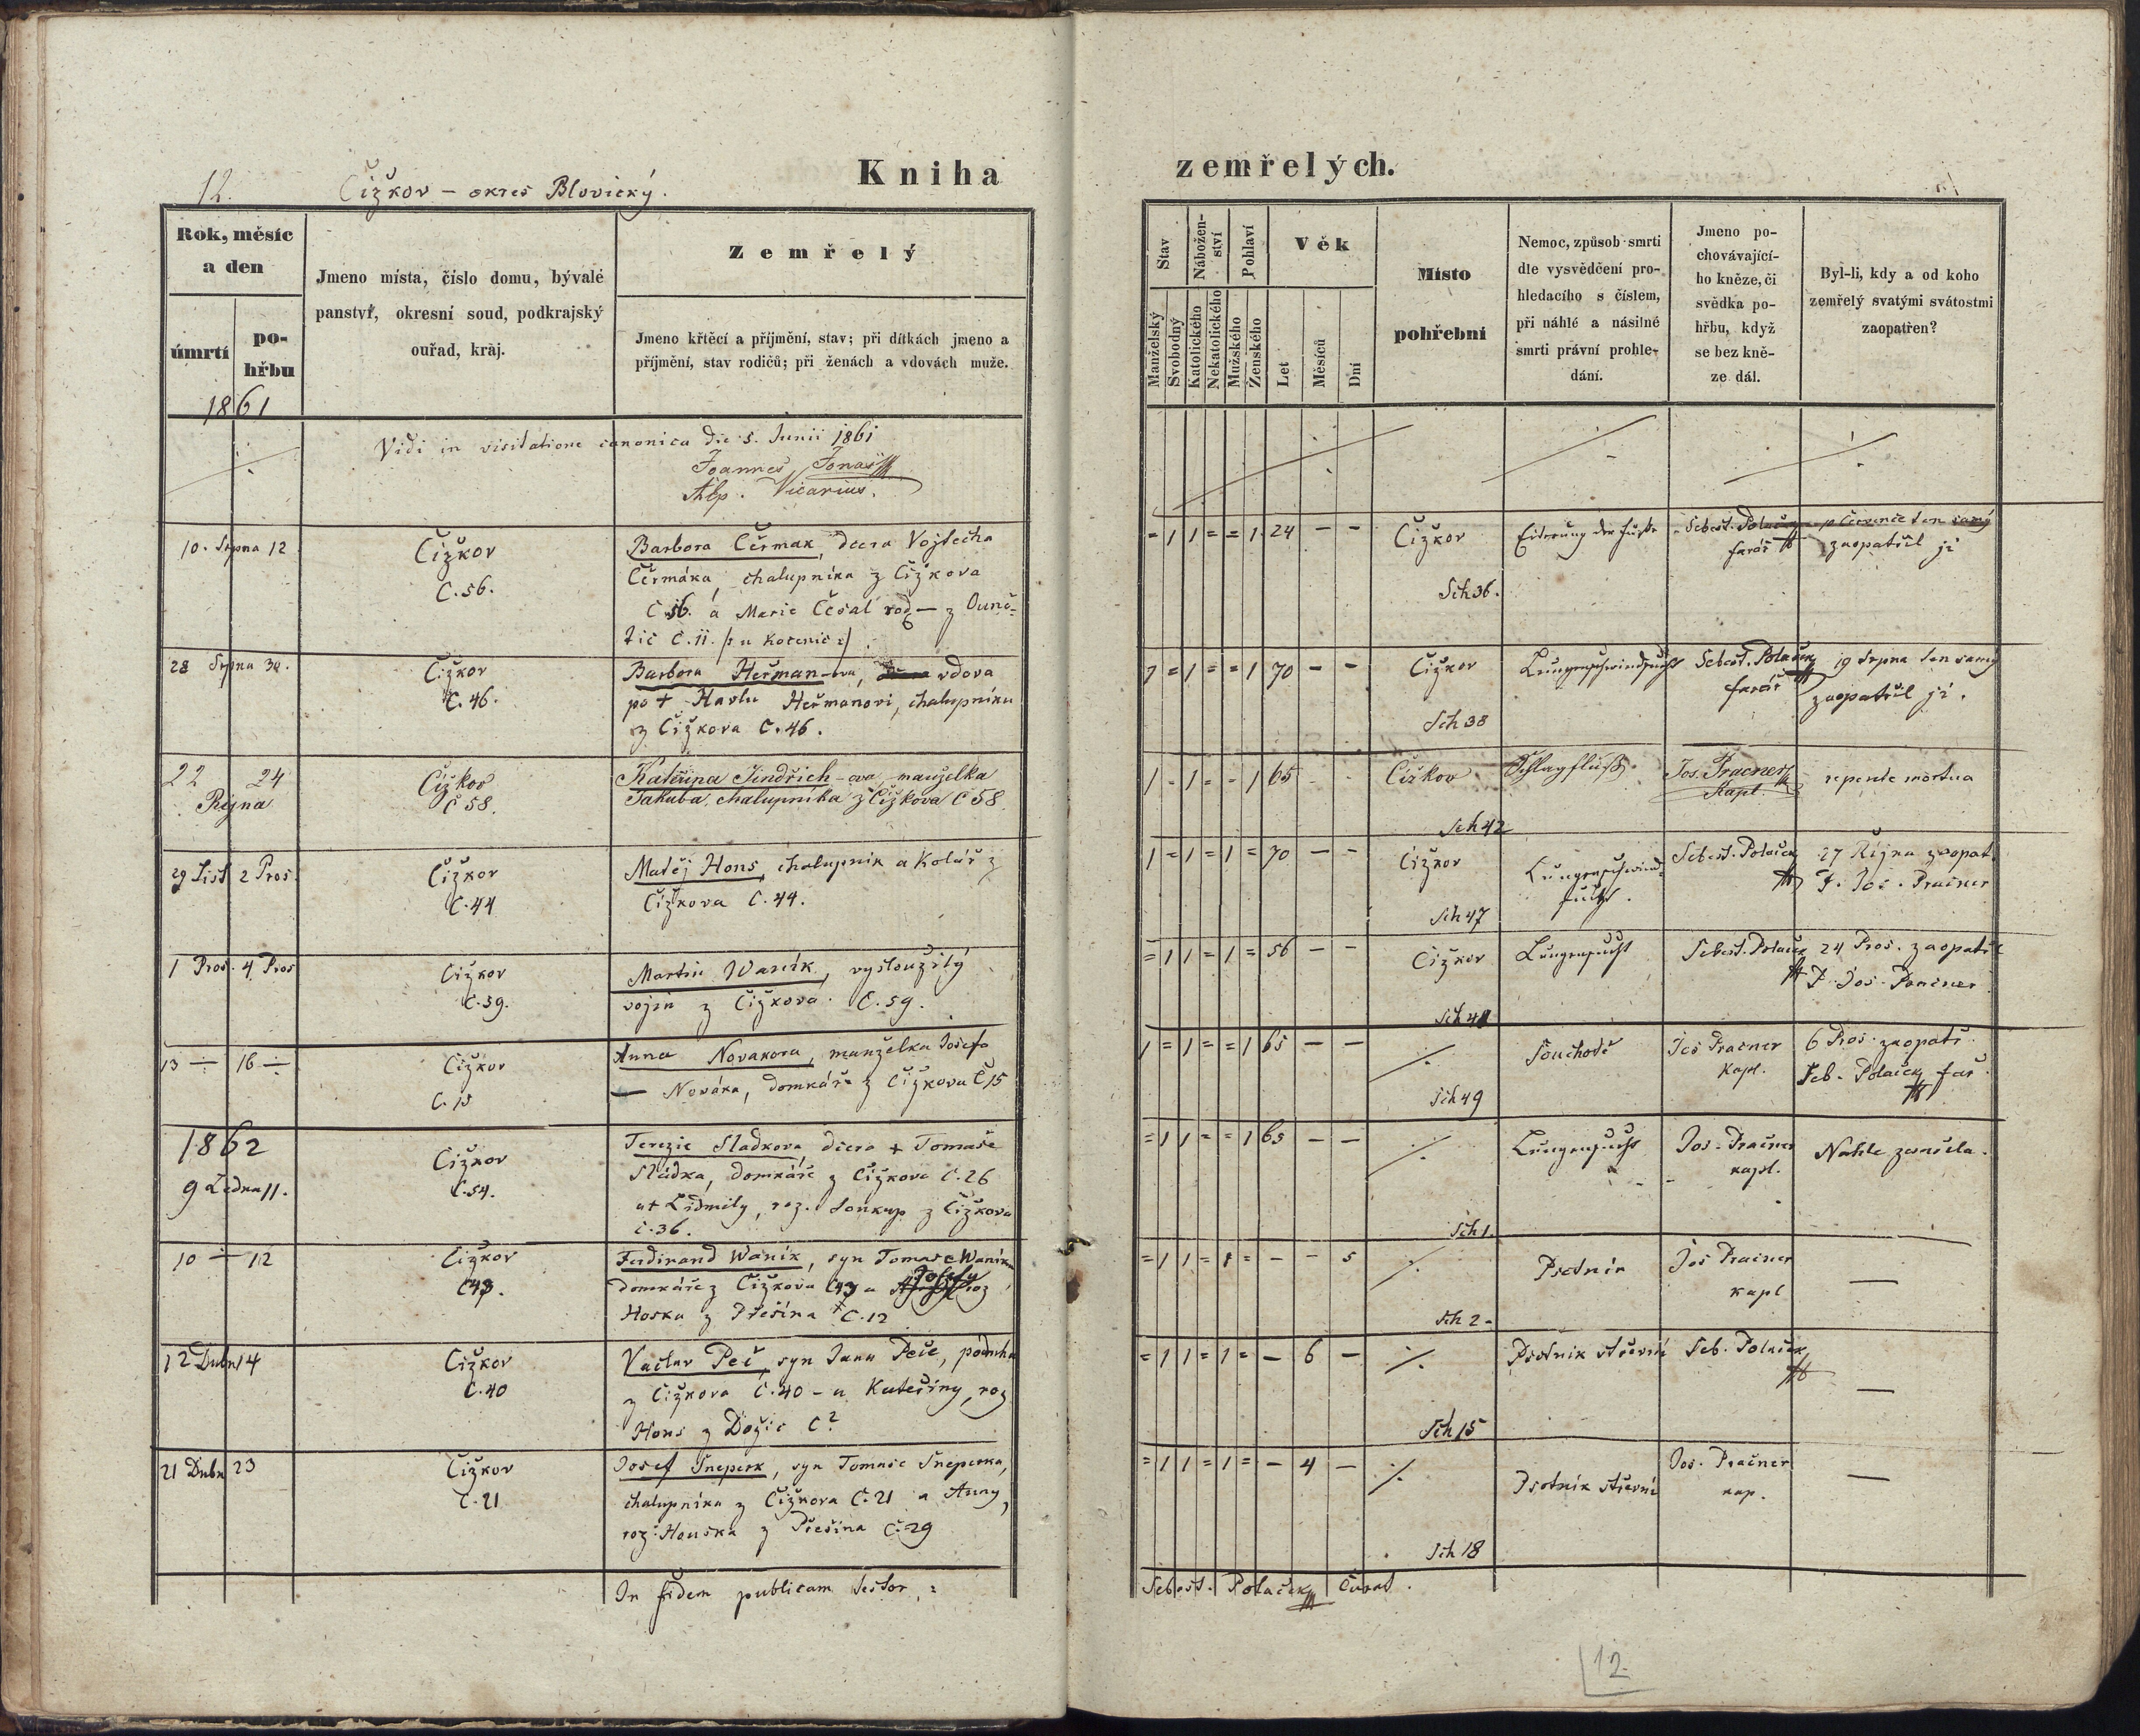 12.
Čížkov – okres Blovický.
Kniha
zemřelých.
Rok, měsíc
a den
úmrtí
po-
hřbu
1861
Jmeno místa, číslo domu, bývalé
panství, okresní soud, podkrajský
ouřad, kraj.
Zemřelý
Jmeno křtěcí a příjmění, stav; při dítkách jmeno a
příjmění, stav rodičů; při ženách a vdovách muže.
Stav
Nábožen-
ství
Pohlaví
Manželský
Svobodný
Katolického
Nekatolického
Mužského
Ženského
Věk
Let
Měsíců
Dní
Místo
pohřební
Nemoc, způsob smrti
dle vysvědčení pro-
hledacího s číslem,
při náhlé a násilné
smrti právní prohle-
dání.
Jmeno po-
chovávající-
ho kněze, či
svědka po-
hřbu, když
se bez kně-
ze dál.
Byl-li, kdy a od koho
zemřelý svatými svátostmi
zaopatřen?
Vidi in visitatione canonica die 5. Junii 1861
Joannes Jonaš
Vicarius.
10. Srpna 12
Čížkov
C. 56.
Barbora Čermak, dcera Vojtěcha
Čermáka, chalupníka z Čížkova
C 56. a Marie Česal rod – z
C. 11.
= 1 1 = = 1 24 – –
Čížkov
Sch 36.
Eiterung der Füße
Sebest. Polaček
farář
10 Července ten samý
zaopatřil ji
28 Srpna 30.
Čížkov
C. 46.
Barbora Heřman-ova, vdova
po + Havlu Heřmanovi, chalupníku
z Čížkova C. 46.
1 = 1 = = 1 70 – –
Čížkov
Sch 38
Lungenschwindsucht
Sebest. Polaček
farář
19 Srpna ten samý
zaopatřil ji.
22 24
Října
Čížkov
C 58.
Kateřina Jindřich-ova, manželka
Jakuba, chalupníka z Čížkova C 58.
1 - 1 = - 1 65
Čížkov
Sch 42
Schlagfluß.
Jos. Pračner
Kapl.
repente mortua
29 List 2 Pros.
Čížkov
C. 44
Matěj Hons, chalupník a Kolář z
Čížkova C. 44.
1 = 1 = 1 = 70 – –
Čížkov
Sch 47
Lungenschwind-
sucht.
Sebest. Polaček
27 Října zaopat.
P. Jos. Pračner
1 Pros. 4 Pros
Čížkov
C. 59.
Martin Waník, vysloužilý
vojín z Čížkova. C. 59.
= 1 1 = 1 = 56 – –
Čížkov
Sch 48
Lungensucht
Sebest. Polaček
24 Pros. zaopatř
P. Jos. Pračner
13 ÷ 16 ÷
Čížkov
C. 15
Anna Novakova, manželka Josefa
— Nováka, domkáře z Čížkova C 15
1 = 1 = = 1 65 – –
Sch 49
Souchotě
Jos Pračner
Kapl.
6 Pros. zaopatř.
Seb. Polaček far.
1862
9 Ledna 11.
Čížkov
C. 54.
Terezie Sladkova, dcera + Tomaše
Sládka, domkáře z Čížkova C. 26
a + Lidmily, roz. Soukup z Čížkova
C. 36.
= 1 1 = = 1 65 – –
Sch 1.
Lungensucht
Jos. Pračner
kapl.
Náhle zemřela.
10 ÷ 12
Čížkov
C 43.
Ferdinand Waník, syn Tomaše Waníka
domkáře z Čížkova C 43 a Josefy roz
z Přešína C. 12
= 1 1 = 1 = – – 5
Sch 2 -
Psotník
Jos Pračner
kapl
—
12 Dubn 14
Čížkov
C. 40
Vaclav Peč, syn Jana Peče,
z Čížkova C. 40 – a Kateřiny, roz
Hons z Dožic C ?
= 1 1 = 1 = – 6 –
Sch 15
Psotník střevní
Seb. Polaček
—
21 Dubn 23
Čížkov
C. 21
Josef Šneperk, syn Tomaše Šneperka,
chalupníka z Čížkova C. 21 a Anny,
roz. Houska z Přešína C. 29
= 1 1 = 1 = – 4 –
Sch 18
Psotník střevní
Jos. Pračner
kap.
—
In fidem publicam testor :
Sebest. Polaček Curat.
12.